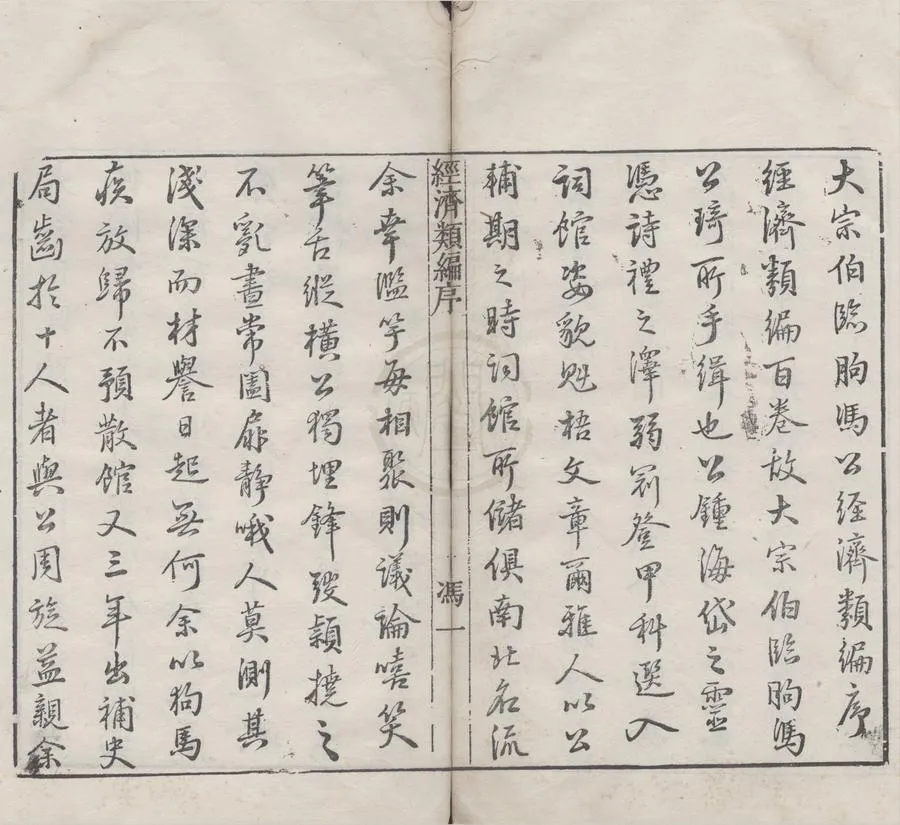 大宗伯臨朐馮公經濟類編序
經濟類編百卷故大宗伯臨朐馮
公琦所手緝也公鍾海岱之靈
憑詩禮之澤弱冠登甲科選入
詞館姿貌魁梧文章爾雅人以公
輔期之時詞館所儲俱南北名流
經濟類編序
馮一
余幸濫竽每相聚則議論嘻笑
筆舌縱橫公獨埋鋒發穎撓之
不亂晝常闔扉靜哦人莫測其
淺深而材譽日起無何余以狗馬
疾放歸不預散館又三年出補史
局齒於十人者與公周旋益親余